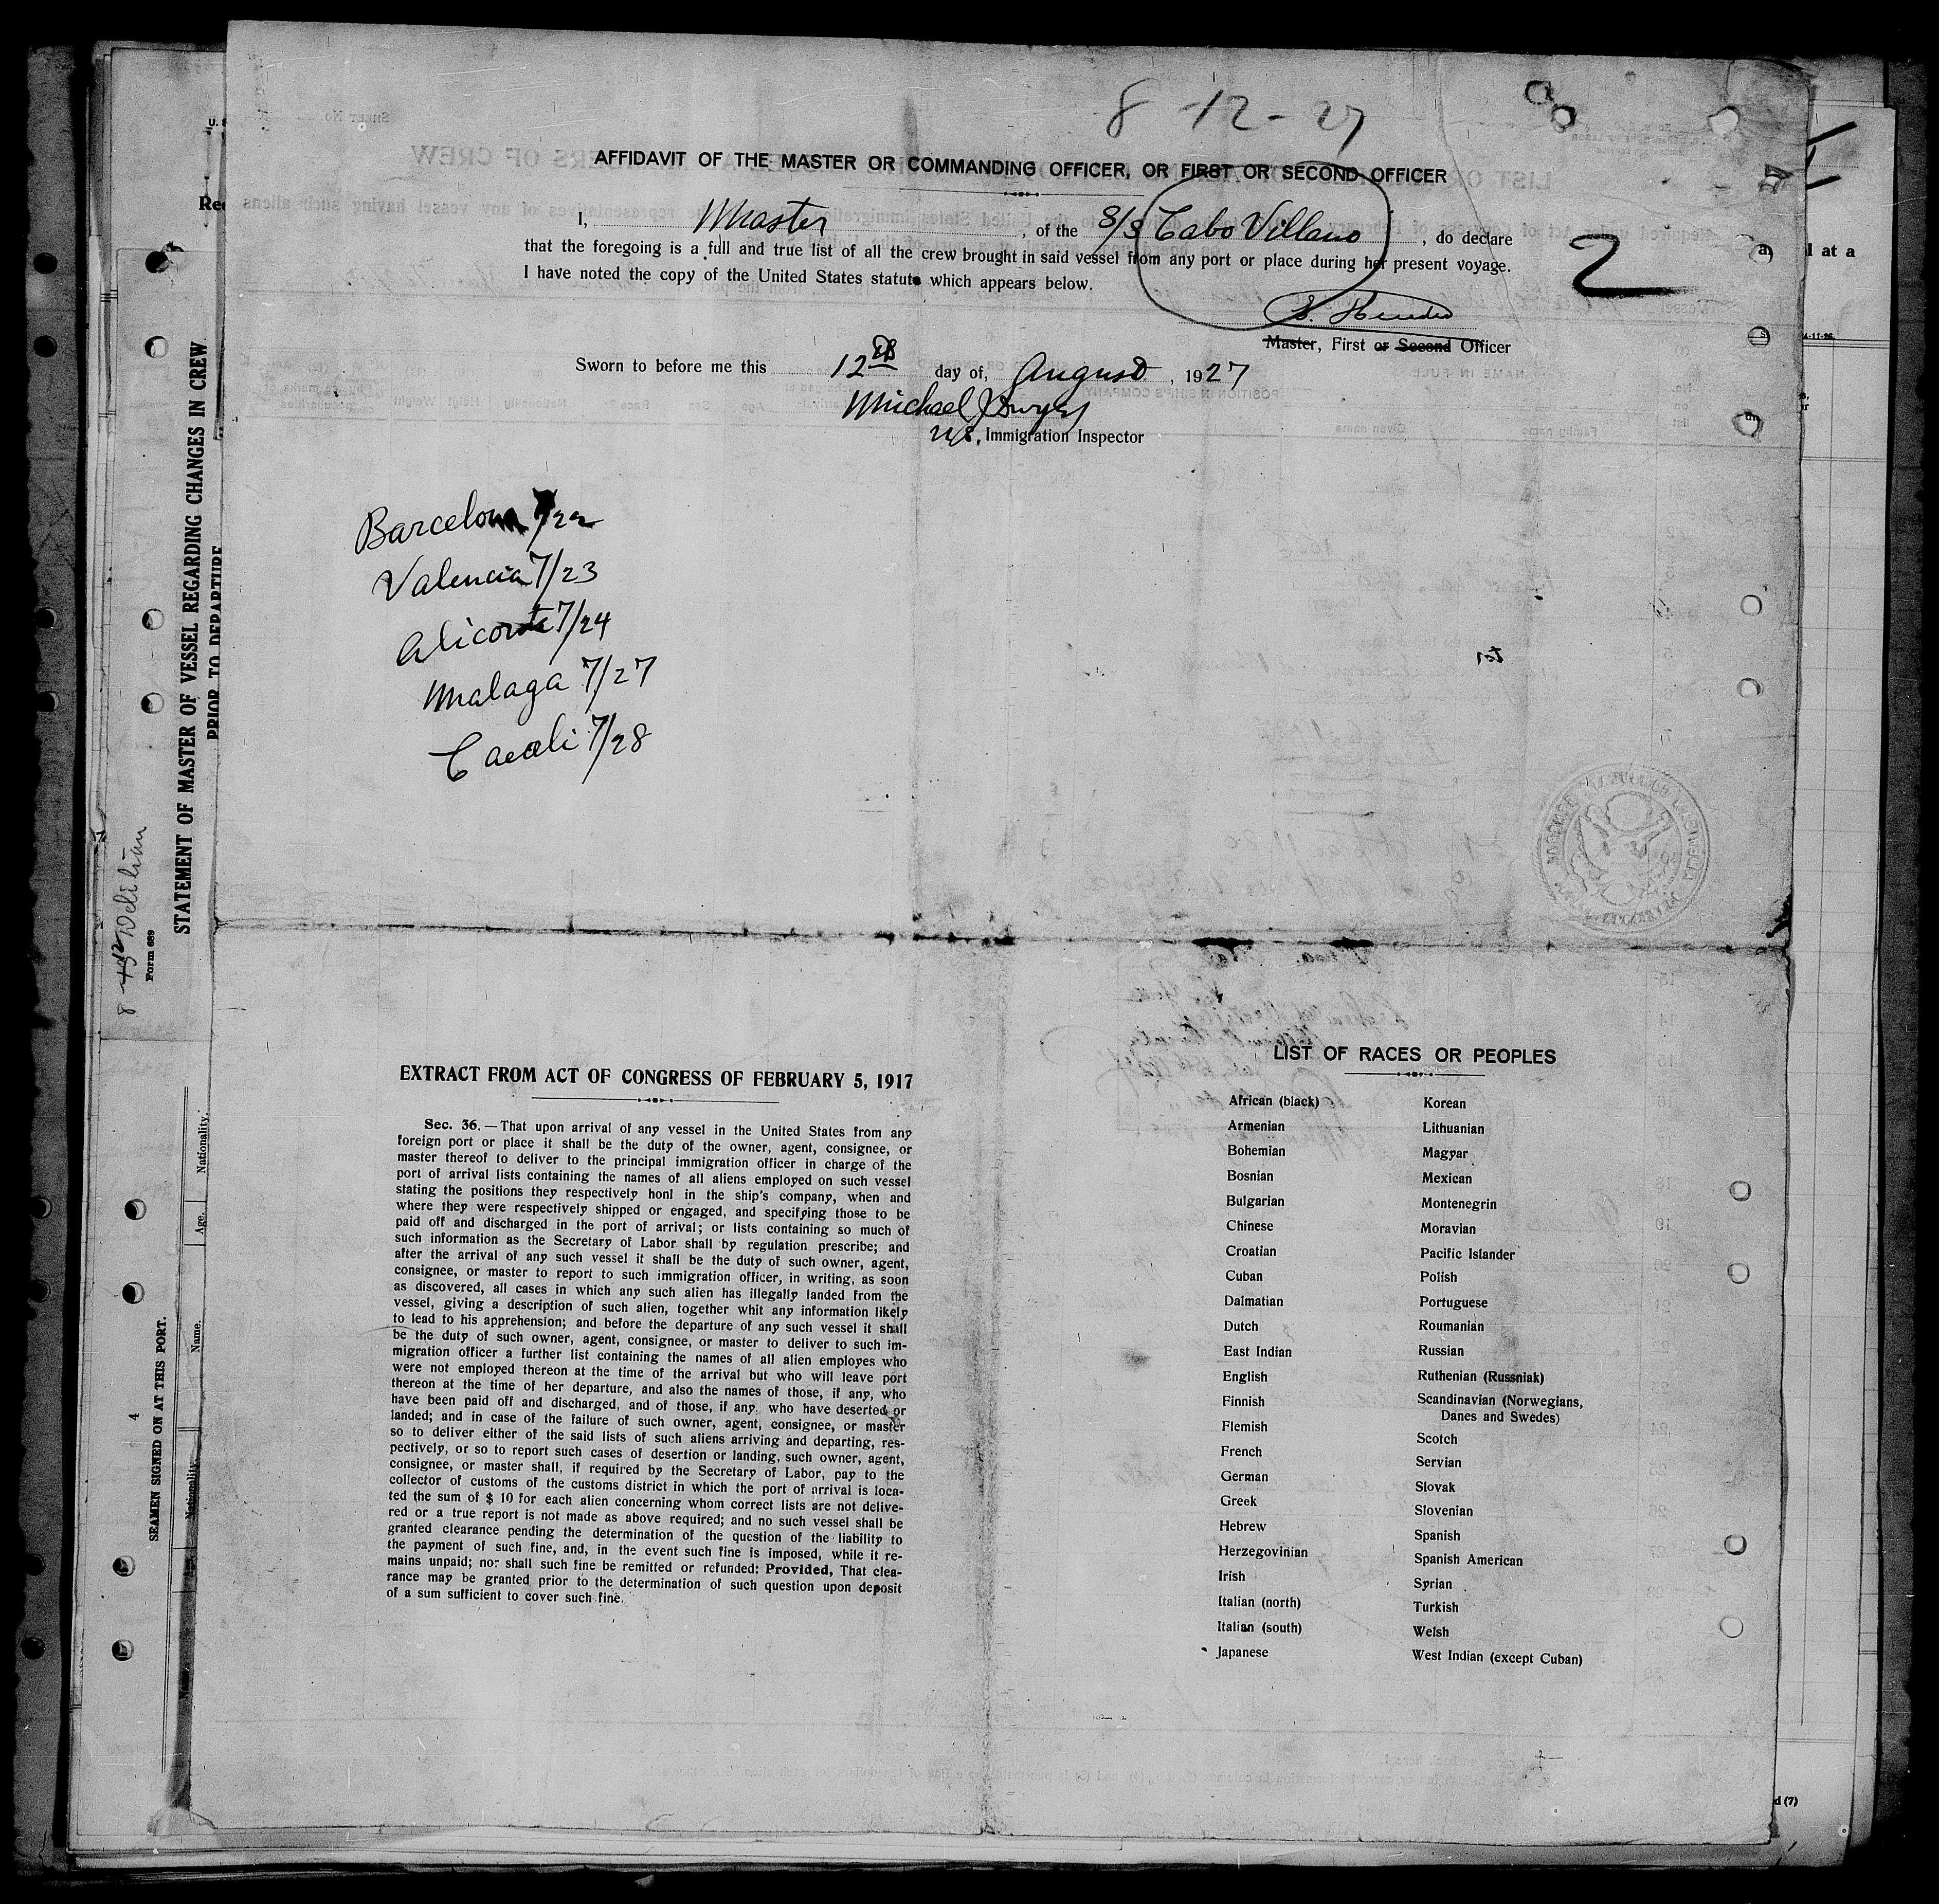 8-12-27
AFFIDAVIT OF THE MASTER OR COMMANDING OFFICER, OR FIRST OR SECOND OFFICER
I, Master, of the S/S Cabo Villano, do declare
that the foregoing is a full and true list of all the crew brought in said vessel from any port or place during her present voyage.
I have noted the copy of the United States statute which appears below.
2
Master, First or Second Officer
Sworn to before me this 12th day of, August, 1927
Michael J Dwyer
U.S. Immigration Inspector
Barcelona 7/22
Valencia 7/23
Alicante 7/24
Malaga 7/27
7/28
EXTRACT FROM ACT OF CONGRESS OF FEBRUARY 5, 1917
Sec. 36.—That upon arrival of any vessel in the United States from any
foreign port or place it shall be the duty of the owner, agent, consignee, or
master thereof to deliver to the principal immigration officer in charge of the
port of arrival lists containing the names of all aliens employed on such vessel
stating the positions they respectively honl in the ship's company, when and
where they were respectively shipped or engaged, and specifying those to be
paid off and discharged in the port of arrival; or lists containing so much of
such information as the Secretary of Labor shall by regulation prescribe; and
after the arrival of any such vessel it shall be the duty of such owner, agent,
consignee, or master to report to such immigration officer, in writing, as soon
as discovered, all cases in which any such alien has illegally landed from the
vessel, giving a description of such alien, together whit any information likely
to lead to his apprehension; and before the departure of any such vessel it shall
be the duty of such owner, agent, consignee, or master to deliver to such im-
migration officer a further list containing the names of all alien employes who
were not employed thereon at the time of the arrival but who will leave port
thereon at the time of her departure, and also the names of those, if any, who
have been paid off and discharged, and of those, if any, who have deserted or
landed; and in case of the failure of such owner, agent, consignee, or master
so to deliver either of the said lists of such aliens arriving and departing, res-
pectively, or so to report such cases of desertion or landing, such owner, agent,
consignee, or master shall, if required by the Secretary of Labor, pay to the
collector of customs of the customs district in which the port of arrival is loca-
ted the sum of $ 10 for each alien concerning whom correct lists are not delive-
red or a true report is not made as above required; and no such vessel shall be
granted clearance pending the determination of the question of the liability to
the payment of such fine, and, in the event such fine is imposed, while it re-
mains unpaid; nor shall such fine be remitted or refunded: Provided, That clea-
rance may be granted prior to the determination of such question upon deposit
of a sum sufficient to cover such fine.
LIST OF RACES OR PEOPLES
African (black)
Armenian
Bohemian
Bosnian
Bulgarian
Chinese
Croatian
Cuban
Dalmatian
Dutch
East Indian
English
Finnish
Flemish
French
German
Greek
Hebrew
Herzegovinian
Irish
Italian (north)
Italian (south)
Japanese
Korean
Lithuanian
Magyar
Mexican
Montenegrin
Moravian
Pacific Islander
Polish
Portuguese
Roumanian
Russian
Ruthenian (Russniak)
Scandinavian (Norwegians,
Danes and Swedes)
Scotch
Servian
Slovak
Slovenian
Spanish
Spanish American
Syrian
Turkish
Welsh
West Indian (except Cuban)
STATEMENT OF MASTER OF VESSEL REGARDING CHANGES IN CREW
PRIOR TO DEPARTURE
Form 689
SEAMEN SIGNED ON AT THIS PORT.
4
Nationality.
Age.
Name.
Nationality.
l at a
4-11-26
d (7)